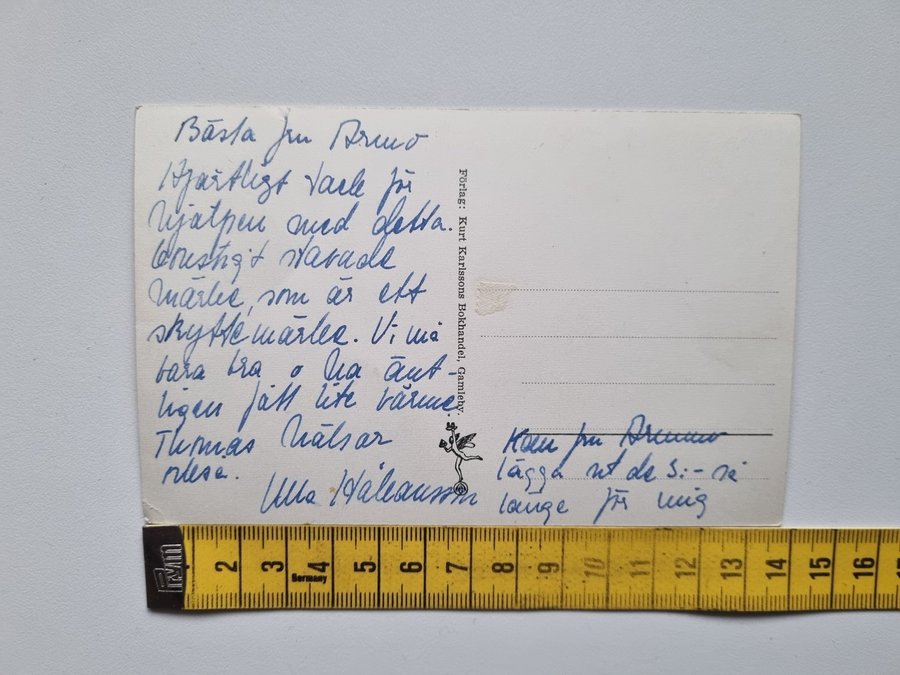 Bästa fru Brunno
Hjärtligt tack för
hjälpen med detta.
konstigt stavade
märke, som är ett
skyttemärke. Vi må
bara bra o ha änt-
ligen fått lite värme.
Thomas hälsar
också.
Ulla Håkansson
Förlag: Kurt Karlssons Bokhandel, Gamleby.
Kan fru
lägga ut de 5:- så
länge för mig
Prym
2 3 4 5 6 7 8 9 10 11 12 13 14 15 16
Germany